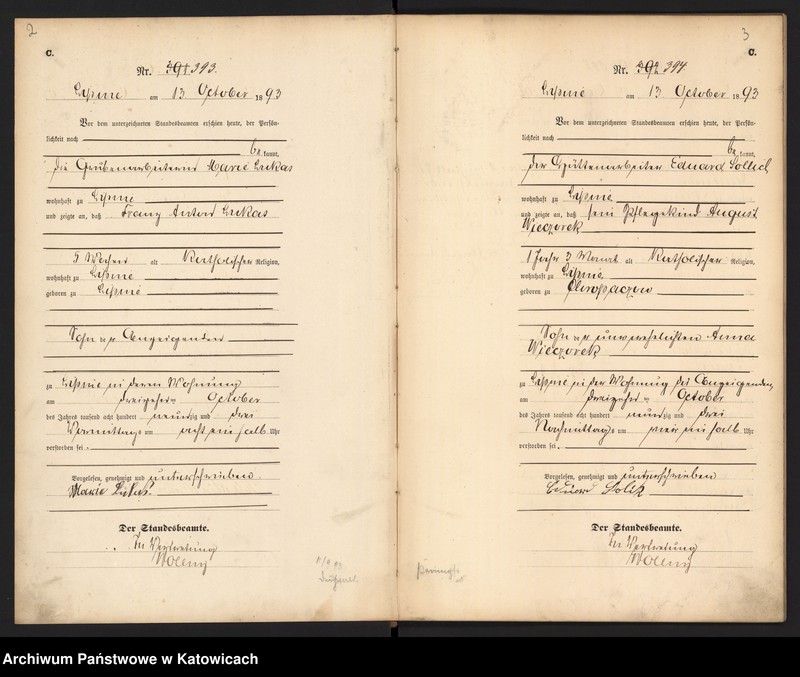 2
C.
Nr. 393.
Lipine am 13 October 1893
Vor dem unterzeichneten Standesbeamten erschien heute, der Persön-
lichkeit nach
be kannt,
die Grubenarbeiterin Marie Lukas
wohnhaft zu Lipine
und zeigte an, daß Franz Anton Lukas
5 Wochen alt Katholischer Religion,
wohnhaft zu Lipine
geboren zu Lipine
Sohn der Anzeigenden
zu Lipine in deren Wohnung
am dreizehnten October
des Jahres tausend acht hundert neunzig und drei
Vormittags um acht ein halb Uhr
verstorben sei.
Vorgelesen, genehmigt und unterschrieben
Marie Lukas.
Der Standesbeamte.
In Vertretung
3
C.
Nr. 394.
Lipine am 13 October 1893
Vor dem unterzeichneten Standesbeamten erschien heute, der Persön-
lichkeit nach
be kannt,
der Hüttenarbeiter Eduard Sollich
wohnhaft zu Lipine
und zeigte an, daß sein Pflegekind August
Wieczorek
1 Jahr 3 Monat alt Katholischer Religion,
wohnhaft zu Lipine
geboren zu Chropaczow
Sohn der unverehelichten Anna
Wieczorek
zu Lipine in der Wohnung des Anzeigenden
am dreizehnten October
des Jahres tausend acht hundert neunzig und drei
Nachmittags um ein halb Uhr
verstorben sei.
Vorgelesen, genehmigt und unterschrieben
Der Standesbeamte.
In Vertretung
Archiwum Państwowe w Katowicach